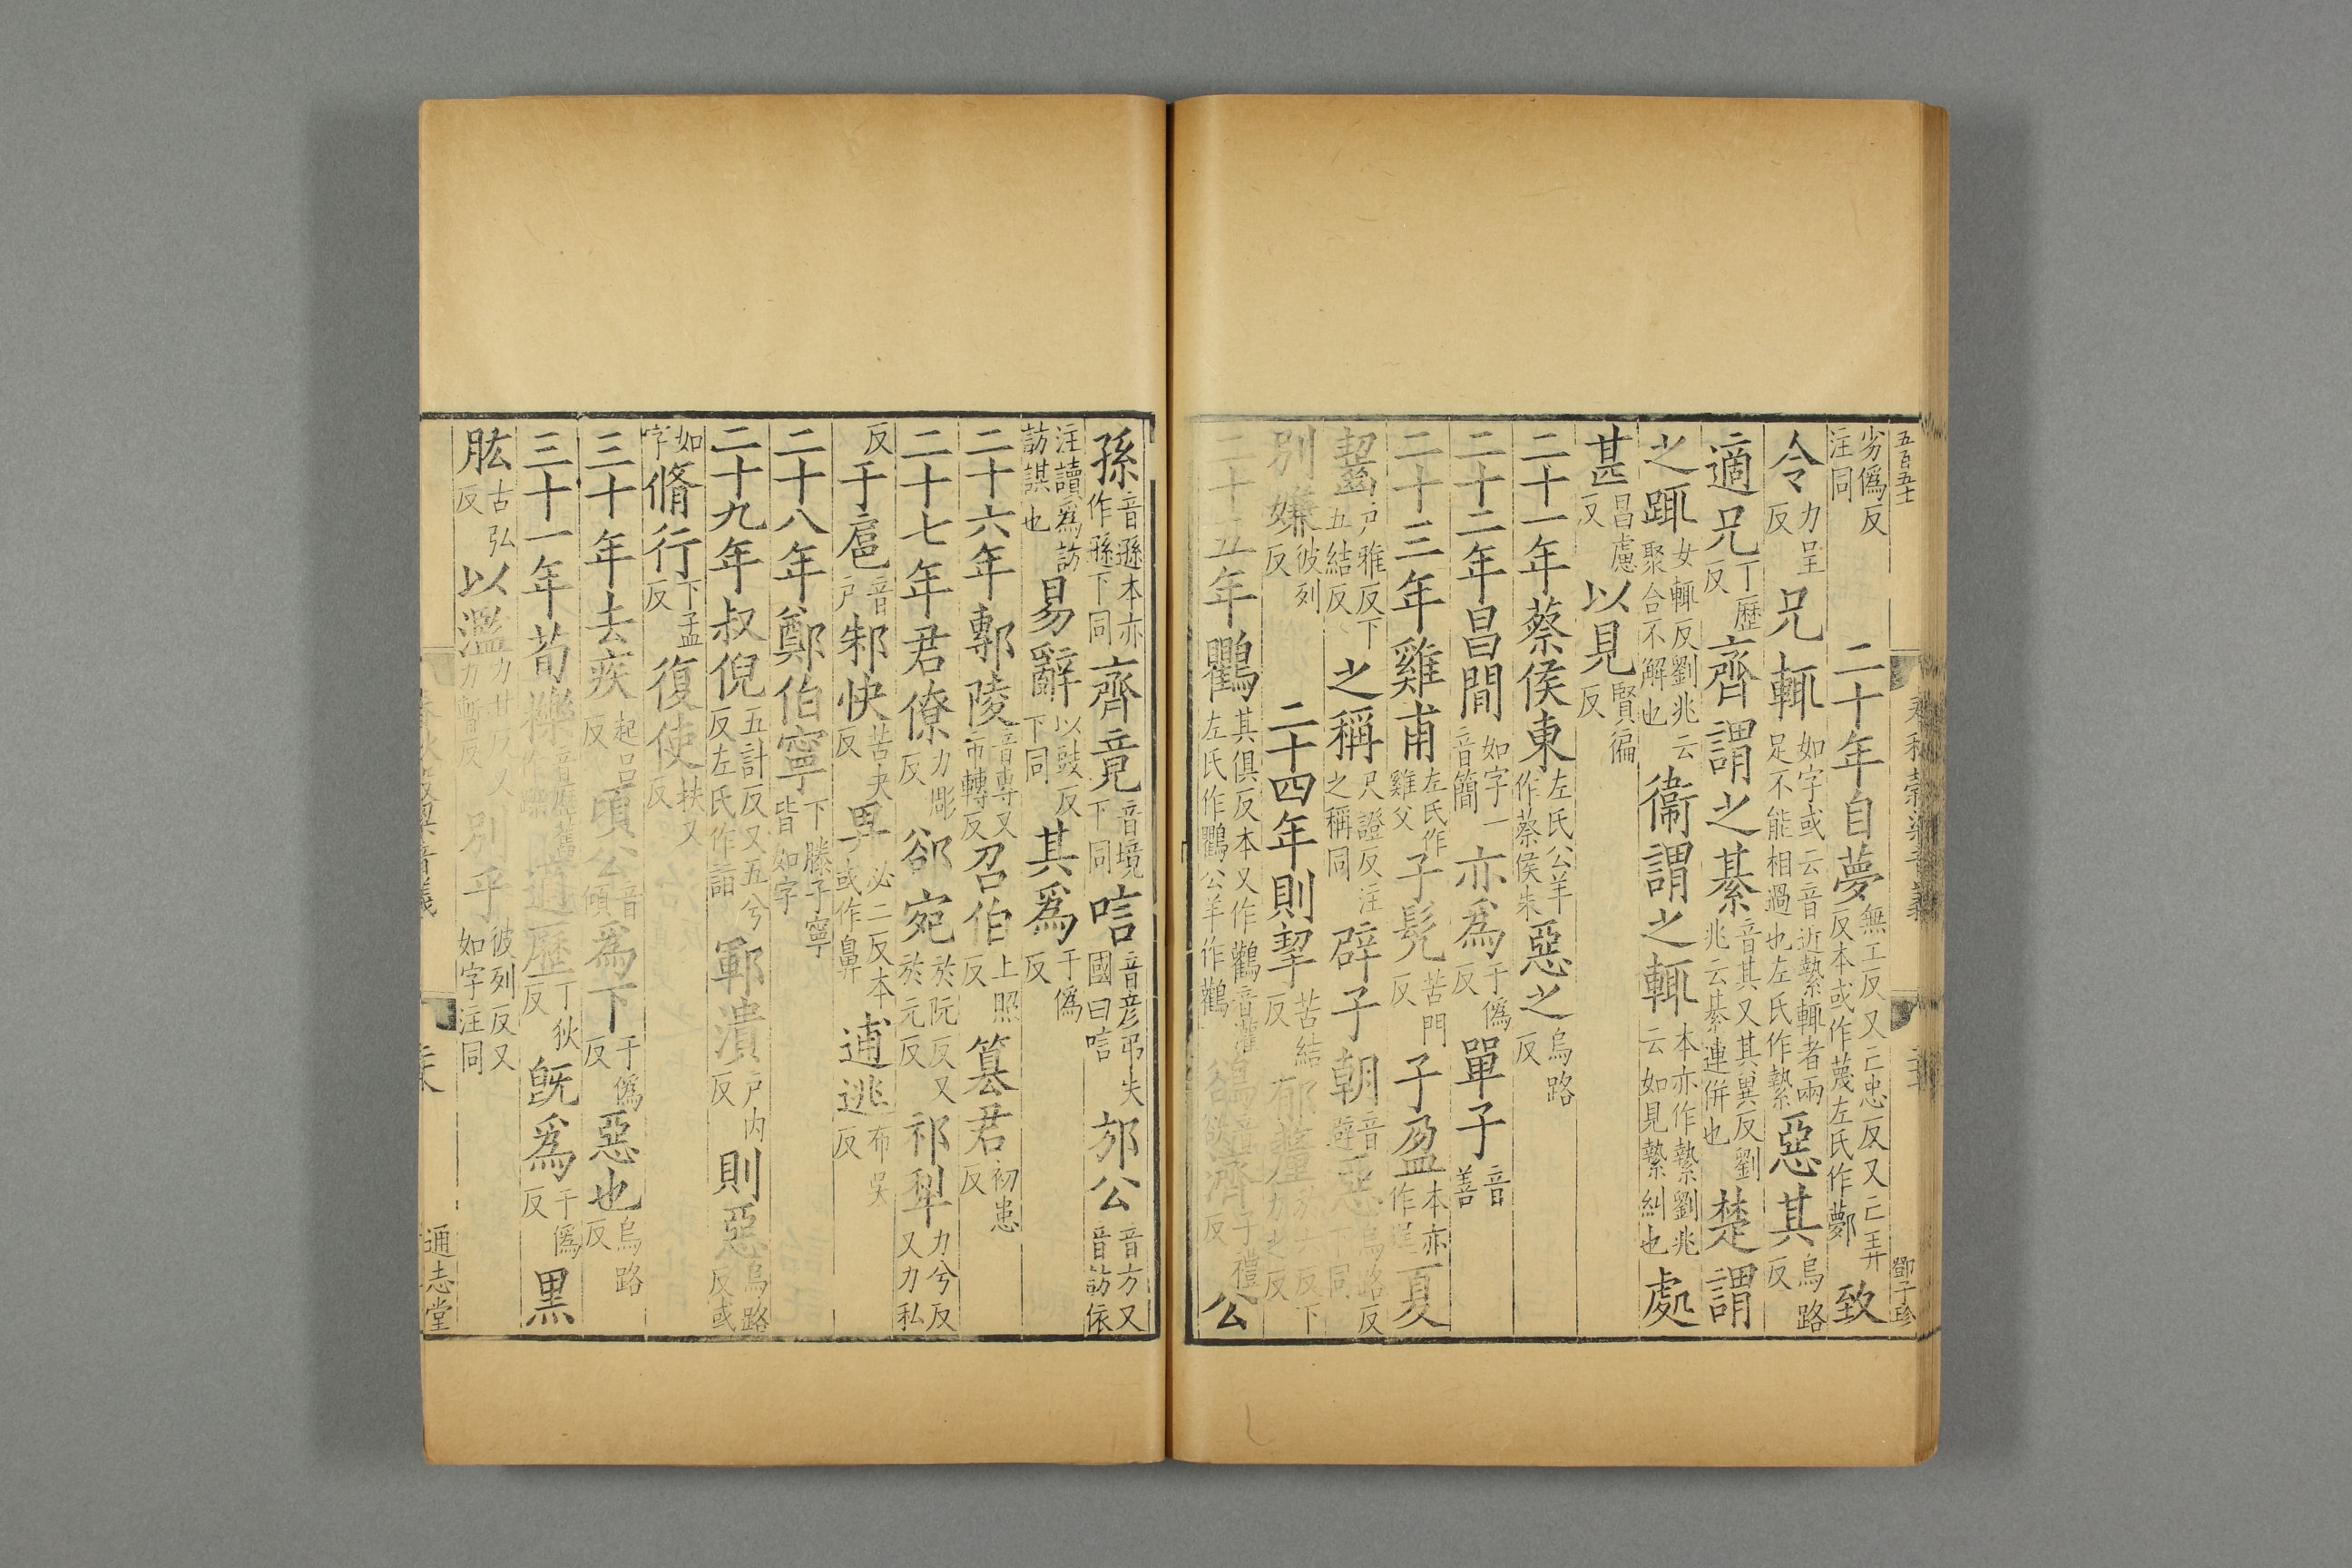 五百五十
春秋穀梁音義
鄧子珍
劣僞反注同 二十年自夢無工反又亡忠反又亡弄反本或作蔑左氏作鄸 致
令力呈反 兄輒如字或云音近縶輒者兩足不能相過也左氏作縶 惡其烏路反
適兄丁歷反 齊謂之綦音其又其異反劉兆云綦連併也 楚謂
之踂女輒反劉兆云聚合不解也 衞謂之輒本亦作縶劉兆云如見縶糾也 處
甚昌慮反 以見賢徧反
二十一年蔡侯東左氏公羊作蔡侯朱 惡之烏路反
二十二年昌間如字一音簡 亦爲于僞反 單子音善
二十三年雞甫左氏作雞父 子髡苦門反 子盈本亦作逞 夏
齧戶雅反下五結反 之稱尺證反注之稱同 辟子朝音避 惡烏路反下同
別嫌彼列反 二十四年則挈苦結反 郁釐力之反下
二十五年鸜其俱反本又作鸛音灌左氏作鸜公羊作鸛 鵒音欲 濟子禮反 公
孫音遜本亦作遜下同 齊竟音境下同 唁音彦弔失國曰唁 邴公音方又音訪依
注讀爲訪訪謀也 易辭以豉反下同 其爲于僞反
二十六年鄟陵音專又市轉反 召伯上照反 簒君初患反
二十七年君僚力彫反 郤宛於阮反又於元反 祁犂力兮反又力私
反 于扈音戶 邾快苦夬反 畀必二反本或作鼻 逋逃布吳反
二十八年鄭伯寧下滕子寧皆如字
二十九年叔倪五計反又五兮反左氏作詣 鄆潰戶內反 則惡烏路反或
如字 脩行下孟反 復使扶又反
三十年去疾起呂反 頃公音傾 爲下于僞反 惡也烏路反
三十一年荀櫟音歷舊作躒 適歷丁狄反 旣爲于僞反 黑
肱古弘反 以濫力甘反又力暫反 別乎彼列反又如字注同
春秋穀梁音義
通志堂